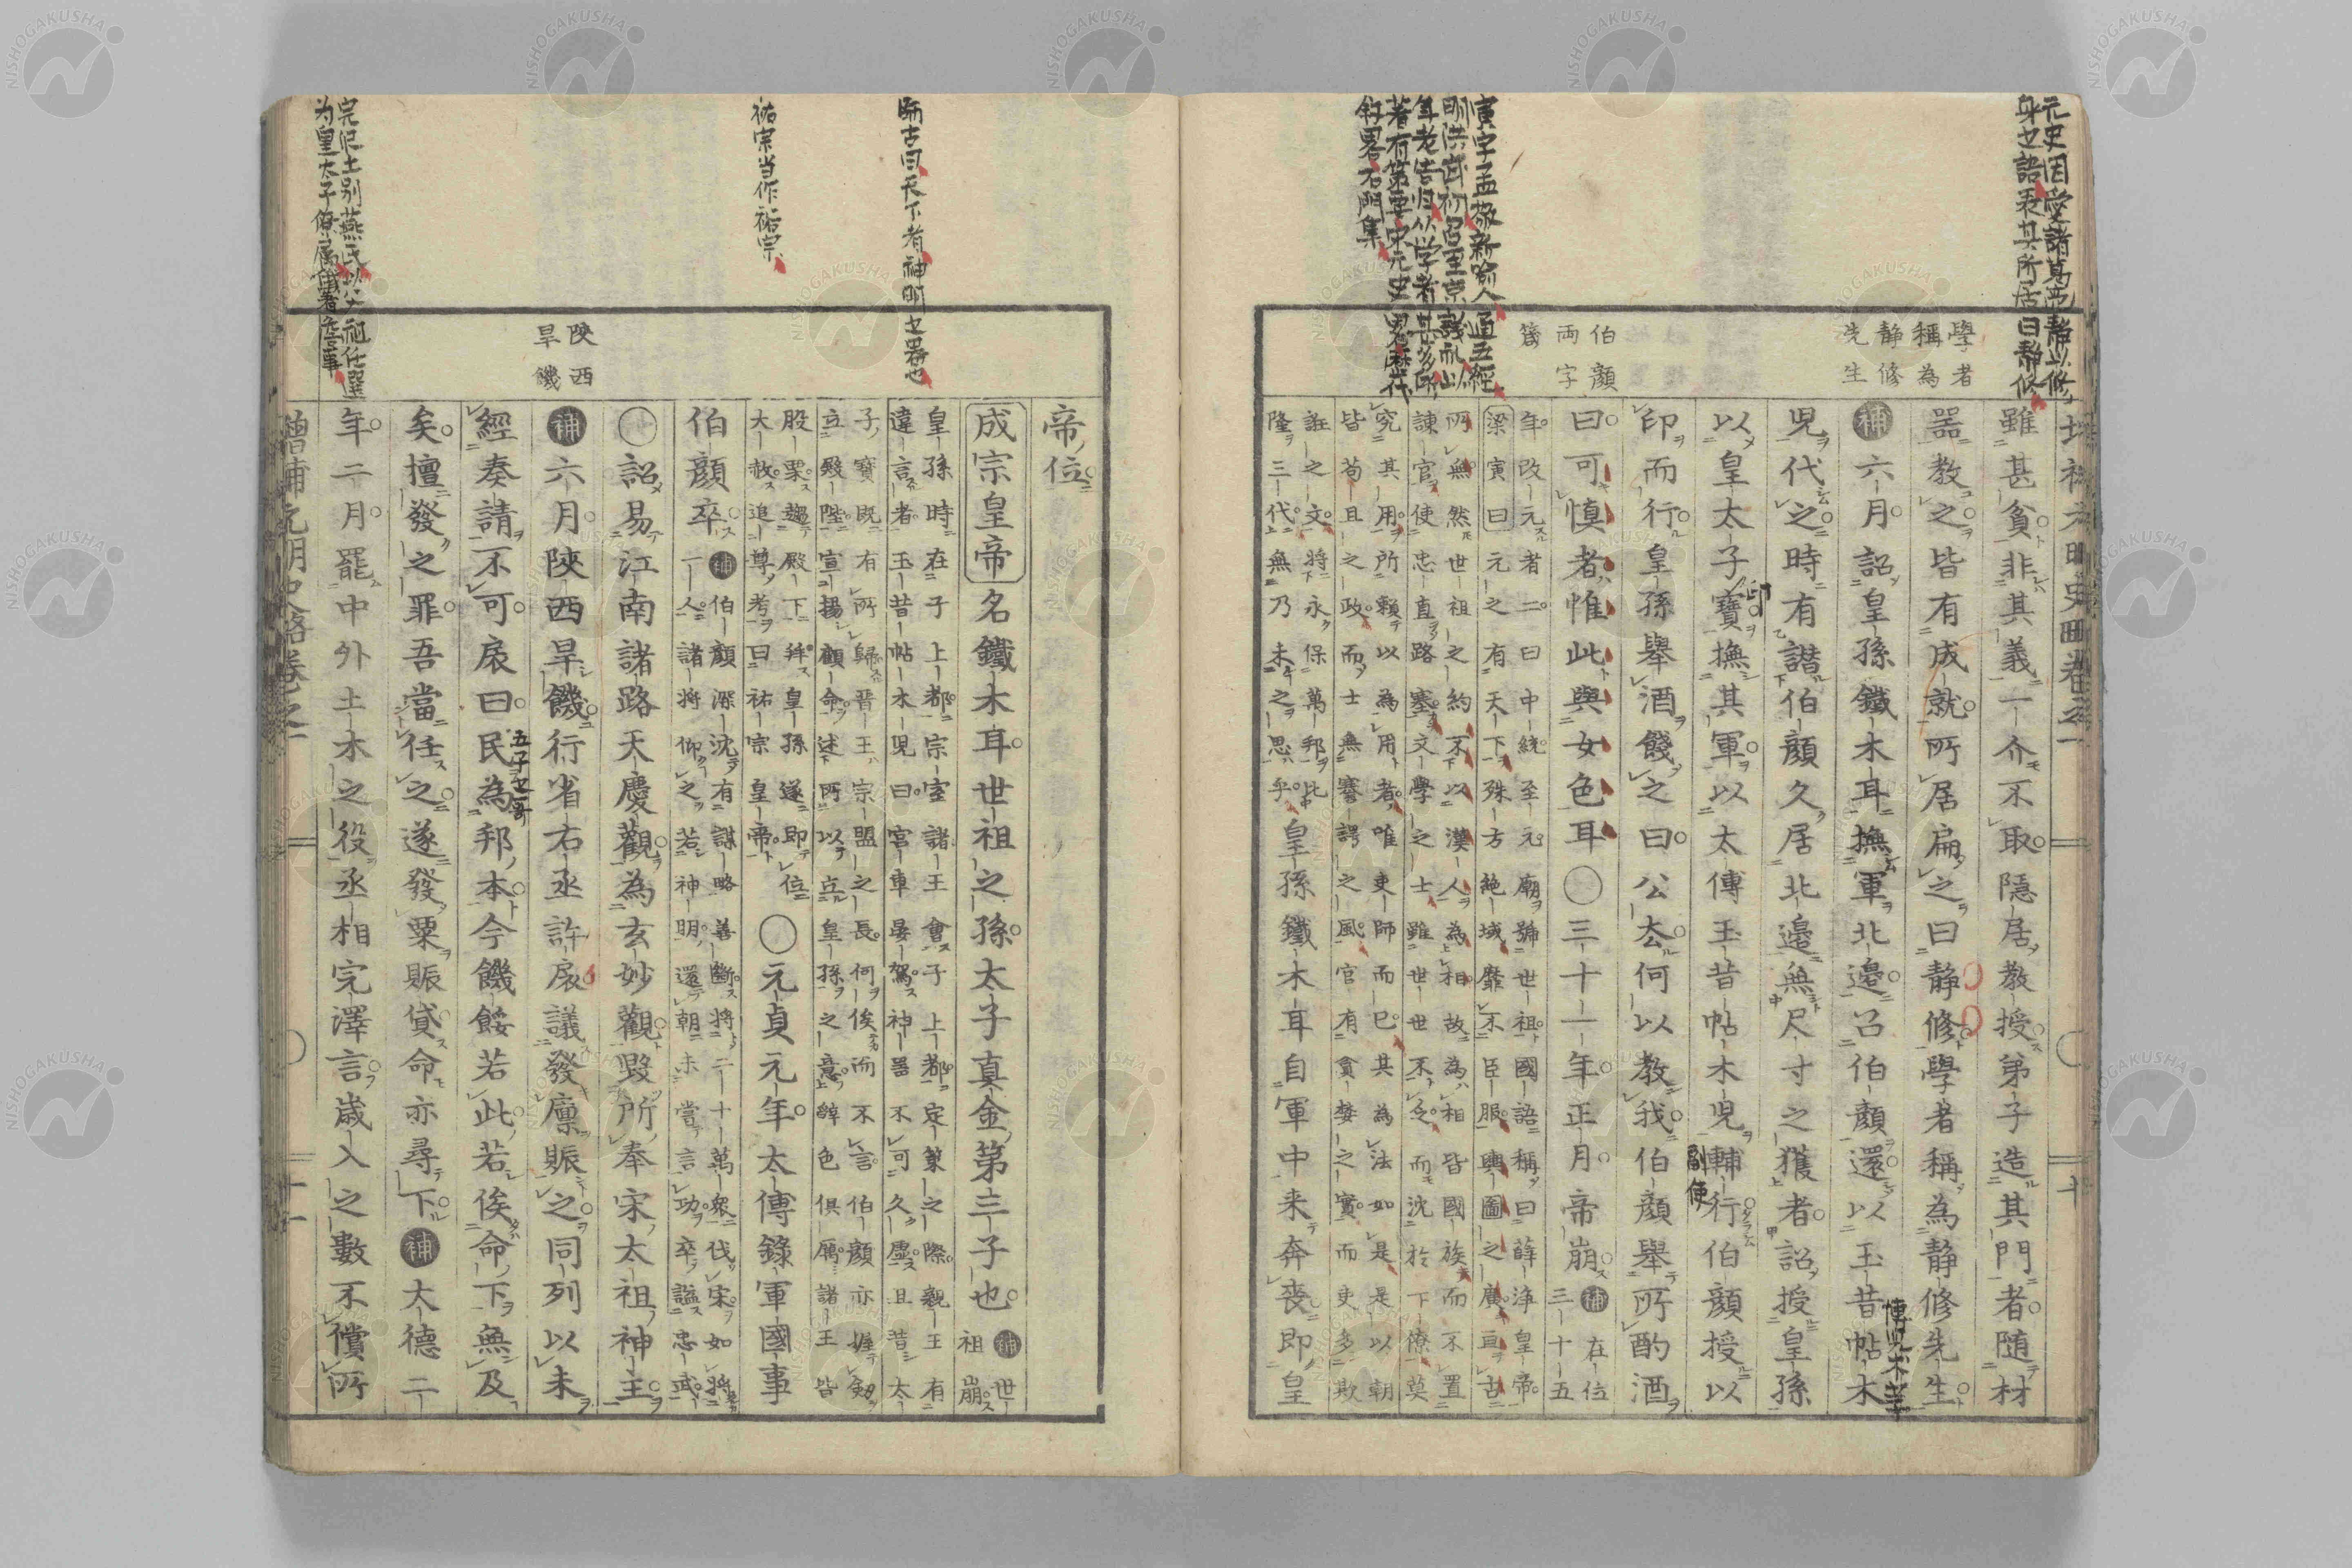 元史因愛諸葛亮靜以修
身之語表其所居曰靜修
學者
稱為
靜修
先生
雖甚貧非其義一介不取隱居教授弟子造其門者随材
器教之皆有成就所居扁之曰靜修學者稱為靜修先生
補六月詔皇孫鐵木耳撫軍北邉召伯顏還以玉昔帖木
児代之時有譖伯顏久居北邉無尺寸之獲者詔授皇孫
以皇太子寶撫其軍以太傅玉昔帖木児輔行伯顏授以
副使
印而行皇孫舉酒餞之曰公去何以教我伯顏舉所酌酒
曰可慎者惟此與女色耳○三十一年正月帝崩補在位
三十五
伯顏
両字
箴
寅字孟敬新喻人通五經
明洪武初召至京議礼以
年老告归从学者甚多所
著有策要宋元史畧歷代
敘畧石門集
年改元者二曰中統至元廟號世祖國語稱曰薛浄皇帝
梁寅曰元之有天下殊方絶域靡不臣服輿圖之廣亘古
所無然世祖之約不以漢人為相故為相皆國族而不置
諌官使忠直路塞文學之士雖世世不乏而沈於下僚莫
究其用所頼以為用者唯吏師而已其為法如是是以朝
皆苟且之政而士無謇諤之風官有貪婪之實而吏多欺
誑之文將永保萬邦比
隆三代無乃未之思乎皇孫鐵木耳自軍中来奔喪即皇
帝位
成宗皇帝名鐵木耳世祖之孫太子真金第三子也補世
祖崩
師古曰天下者神明之器也
皇孫時在子上都宗室諸王會子上都定策之際親王有
違言者玉昔帖木児曰宮車晏駕神器不可久虛且昔太
子寶既有所歸晋王宗盟之長何俟而不言伯顏亦握劔
立殿陛宣揚顧命述所以立皇孫之意辭色俱厲諸王皆
祐宗当作裕宗
股栗趨殿下拜皇孫遂即位
大赦追尊考曰祐宗皇帝○元貞元年太傅錄軍國事
伯顏卒補伯顏深沈有謀略善斷將二十萬衆伐宋如將
一人諸將仰之若神明還朝未嘗言功卒謚忠武
○詔易江南諸路天慶觀為玄妙觀毀所奉宋太祖神主
陝西
旱饑
補六月陝西旱饑行省右丞許扆議發廩賑之同列以未
經奏請不可扆曰民為邦本今饑餒若此若俟命下無及
五子之哥
矣擅發之罪吾當任之遂發粟賑貸命亦尋下補大德二
年二月罷中外土木之役丞相完澤言歲入之數不償所
完沢土別燕氏以大祖任選
为皇太子僚属
增補元明史略卷之一
十一